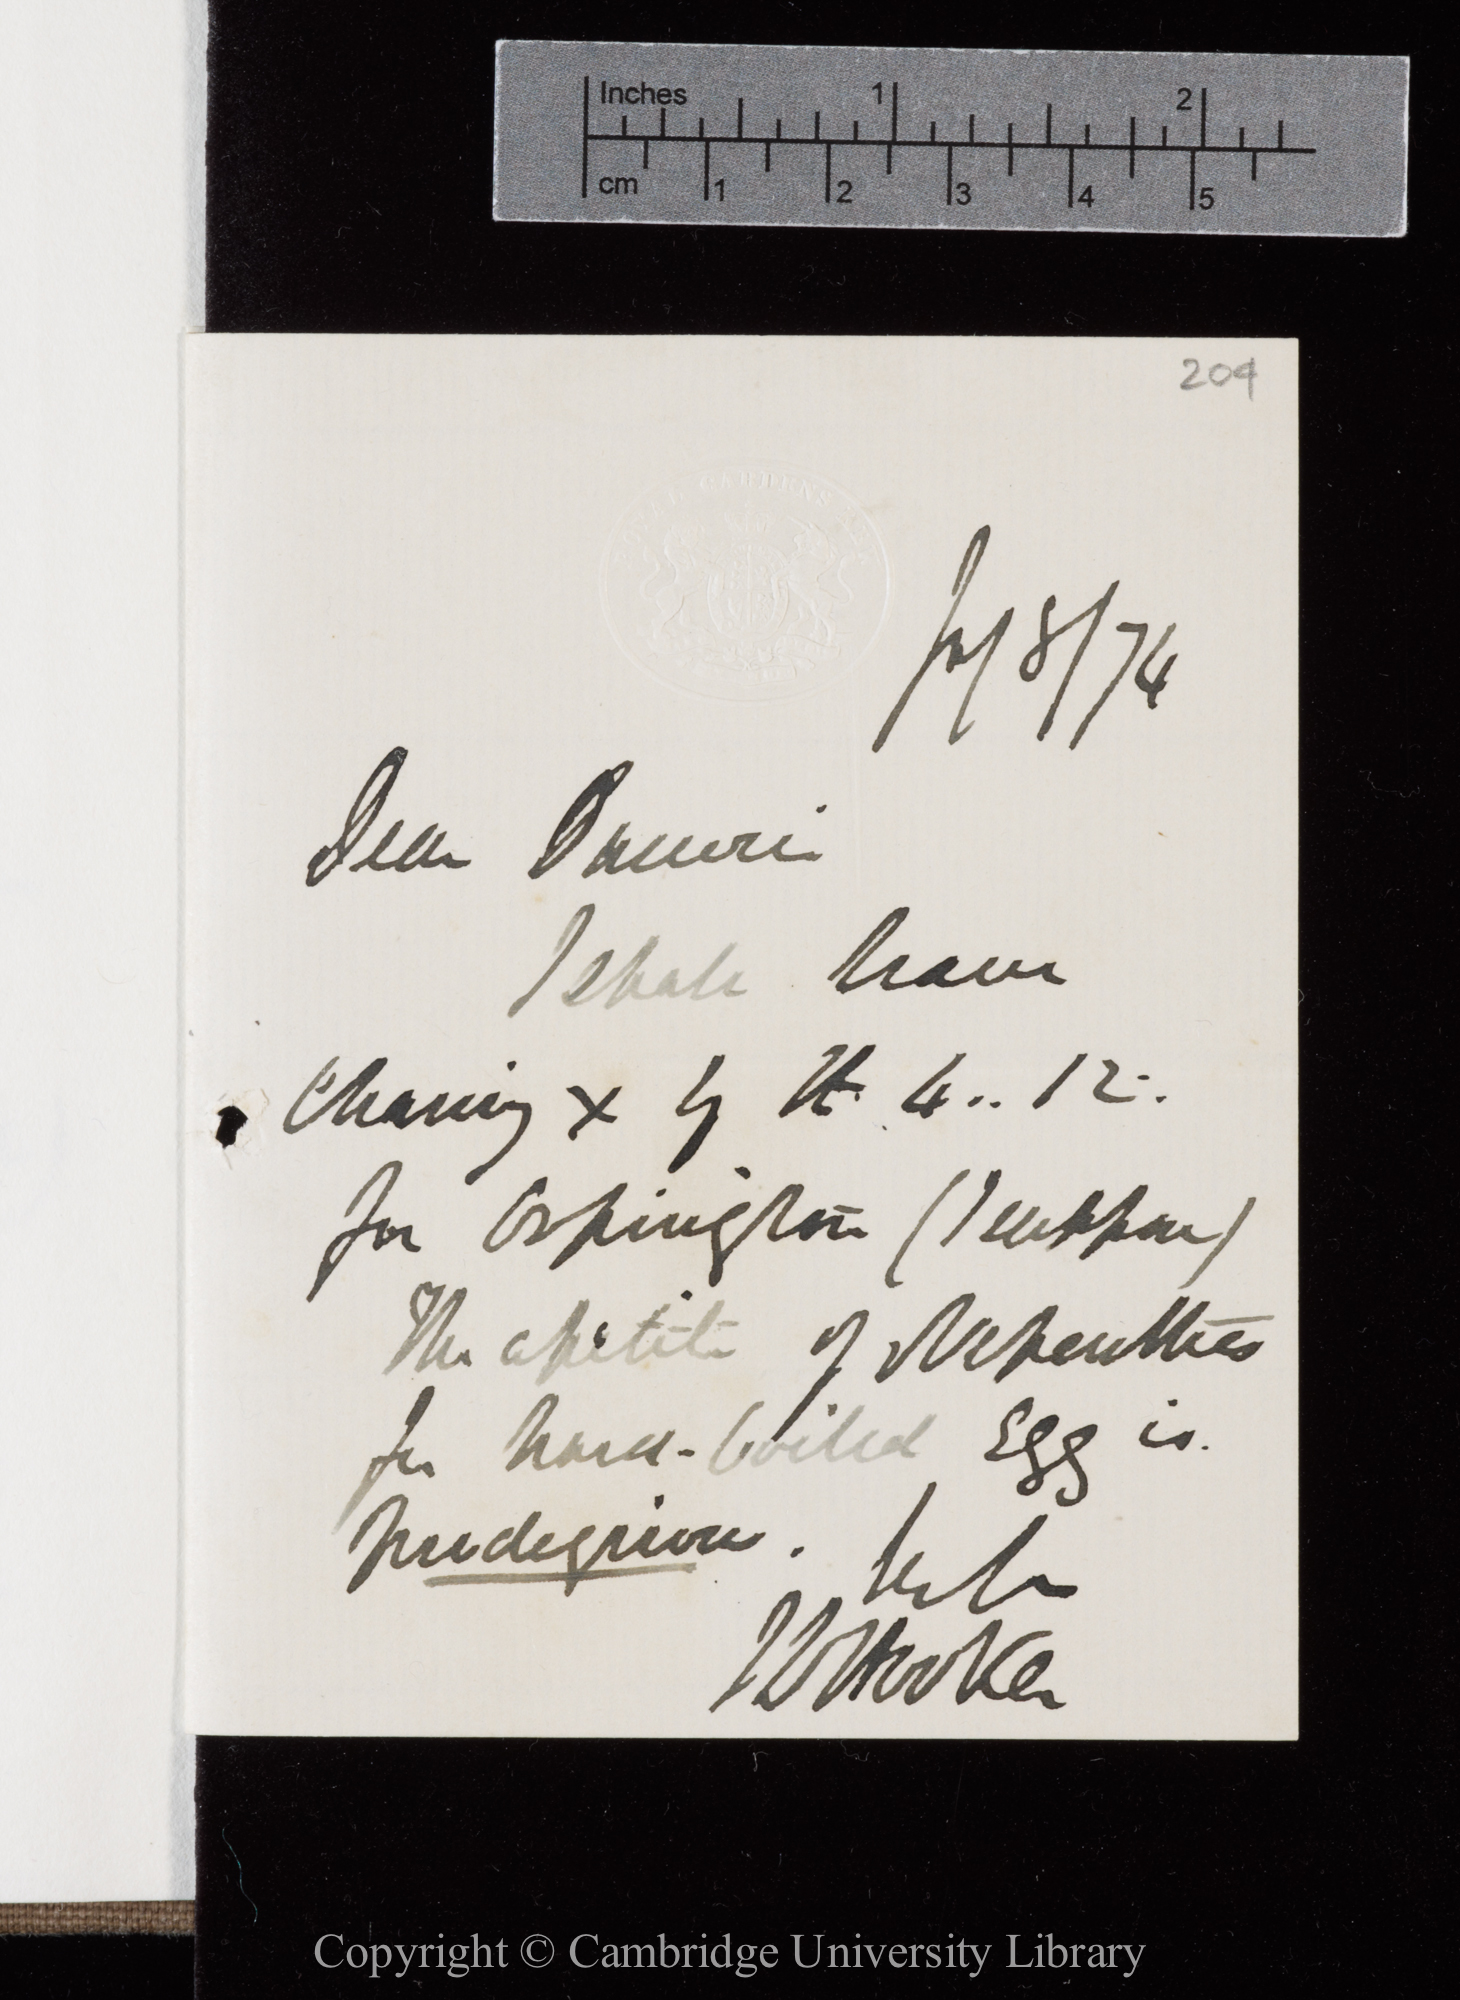 Inches 1 2
cm 1 2 3 4 5
204
ROYAL GARDENS KEW
July 8/74
Dear Darwin
I shall leave
Charing X by the 4..12.
for Orpington (I suppose)
The apetite of Nepenthes
for hard-boiled Egg is
prodegious.
JDHooker
Copyright © Cambridge University Library